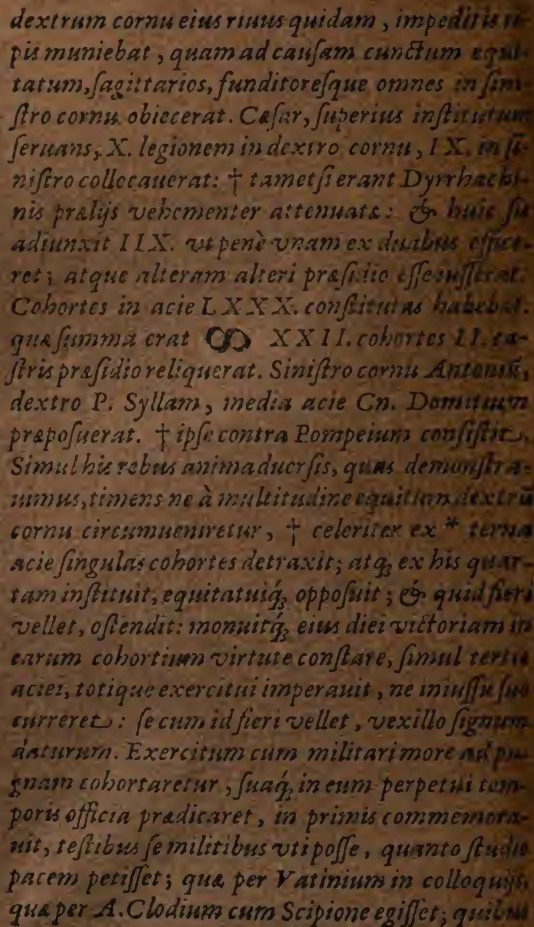 dextrum cornu eius riuus quidam, impeditis ri-
pis muniebat, quam ad cauſam cunctum equi-
tatum, ſagittarios, funditoreſque omnes in ſini-
ſtro cornu obiecerat. Cæſar, ſuperius inſtitutum
ſeruans, X. legionem in dextro cornu, IX. in ſi-
niſtro collocauerat: † tametſi erant Dyrrhachi-
nis prælijs vehementer attenuatæ: & huic ſic
adiunxit IIX. vt penè vnam ex duabus effice-
ret; atque alteram alteri præſidio eſſe iuſſerat.
Cohortes in acie LXXX. conſtitutas habebat.
quæ ſumma erat ↀ XXII. cohortes II. ca-
ſtris præſidio reliquerat. Siniſtro cornu Antoniũ,
dextro P. Syllam, media acie Cn. Domitium
præpoſuerat. † ipſe contra Pompeium conſiſtit.
Simul his rebus animaduerſis, quas demonſtra-
uimus, timens ne à multitudine equitum dextrũ
cornu circumueniretur, † celeriter ex * terna
acie ſingulas cohortes detraxit; atq; ex his quar-
tam inſtituit, equitatuiq; oppoſuit; & quid fieri
vellet, oſtendit: monuitq; eius diei victoriam in
earum cohortium virtute conſtare, ſimul tertiæ
aciei, totique exercitui imperauit, ne iniuſſu ſuo
curreret: ſe cum id fieri vellet, vexillo ſignum
daturum. Exercitum cum militari more ad pu-
gnam cohortaretur, ſuaq; in eum perpetui tem-
poris officia prædicaret, in primis commemora-
uit, teſtibus ſe militibus vti poſſe, quanto ſtudio
pacem petiſſet; quæ per Vatinium in colloquijs,
quæ per A. Clodium cum Scipione egiſſet; quibus